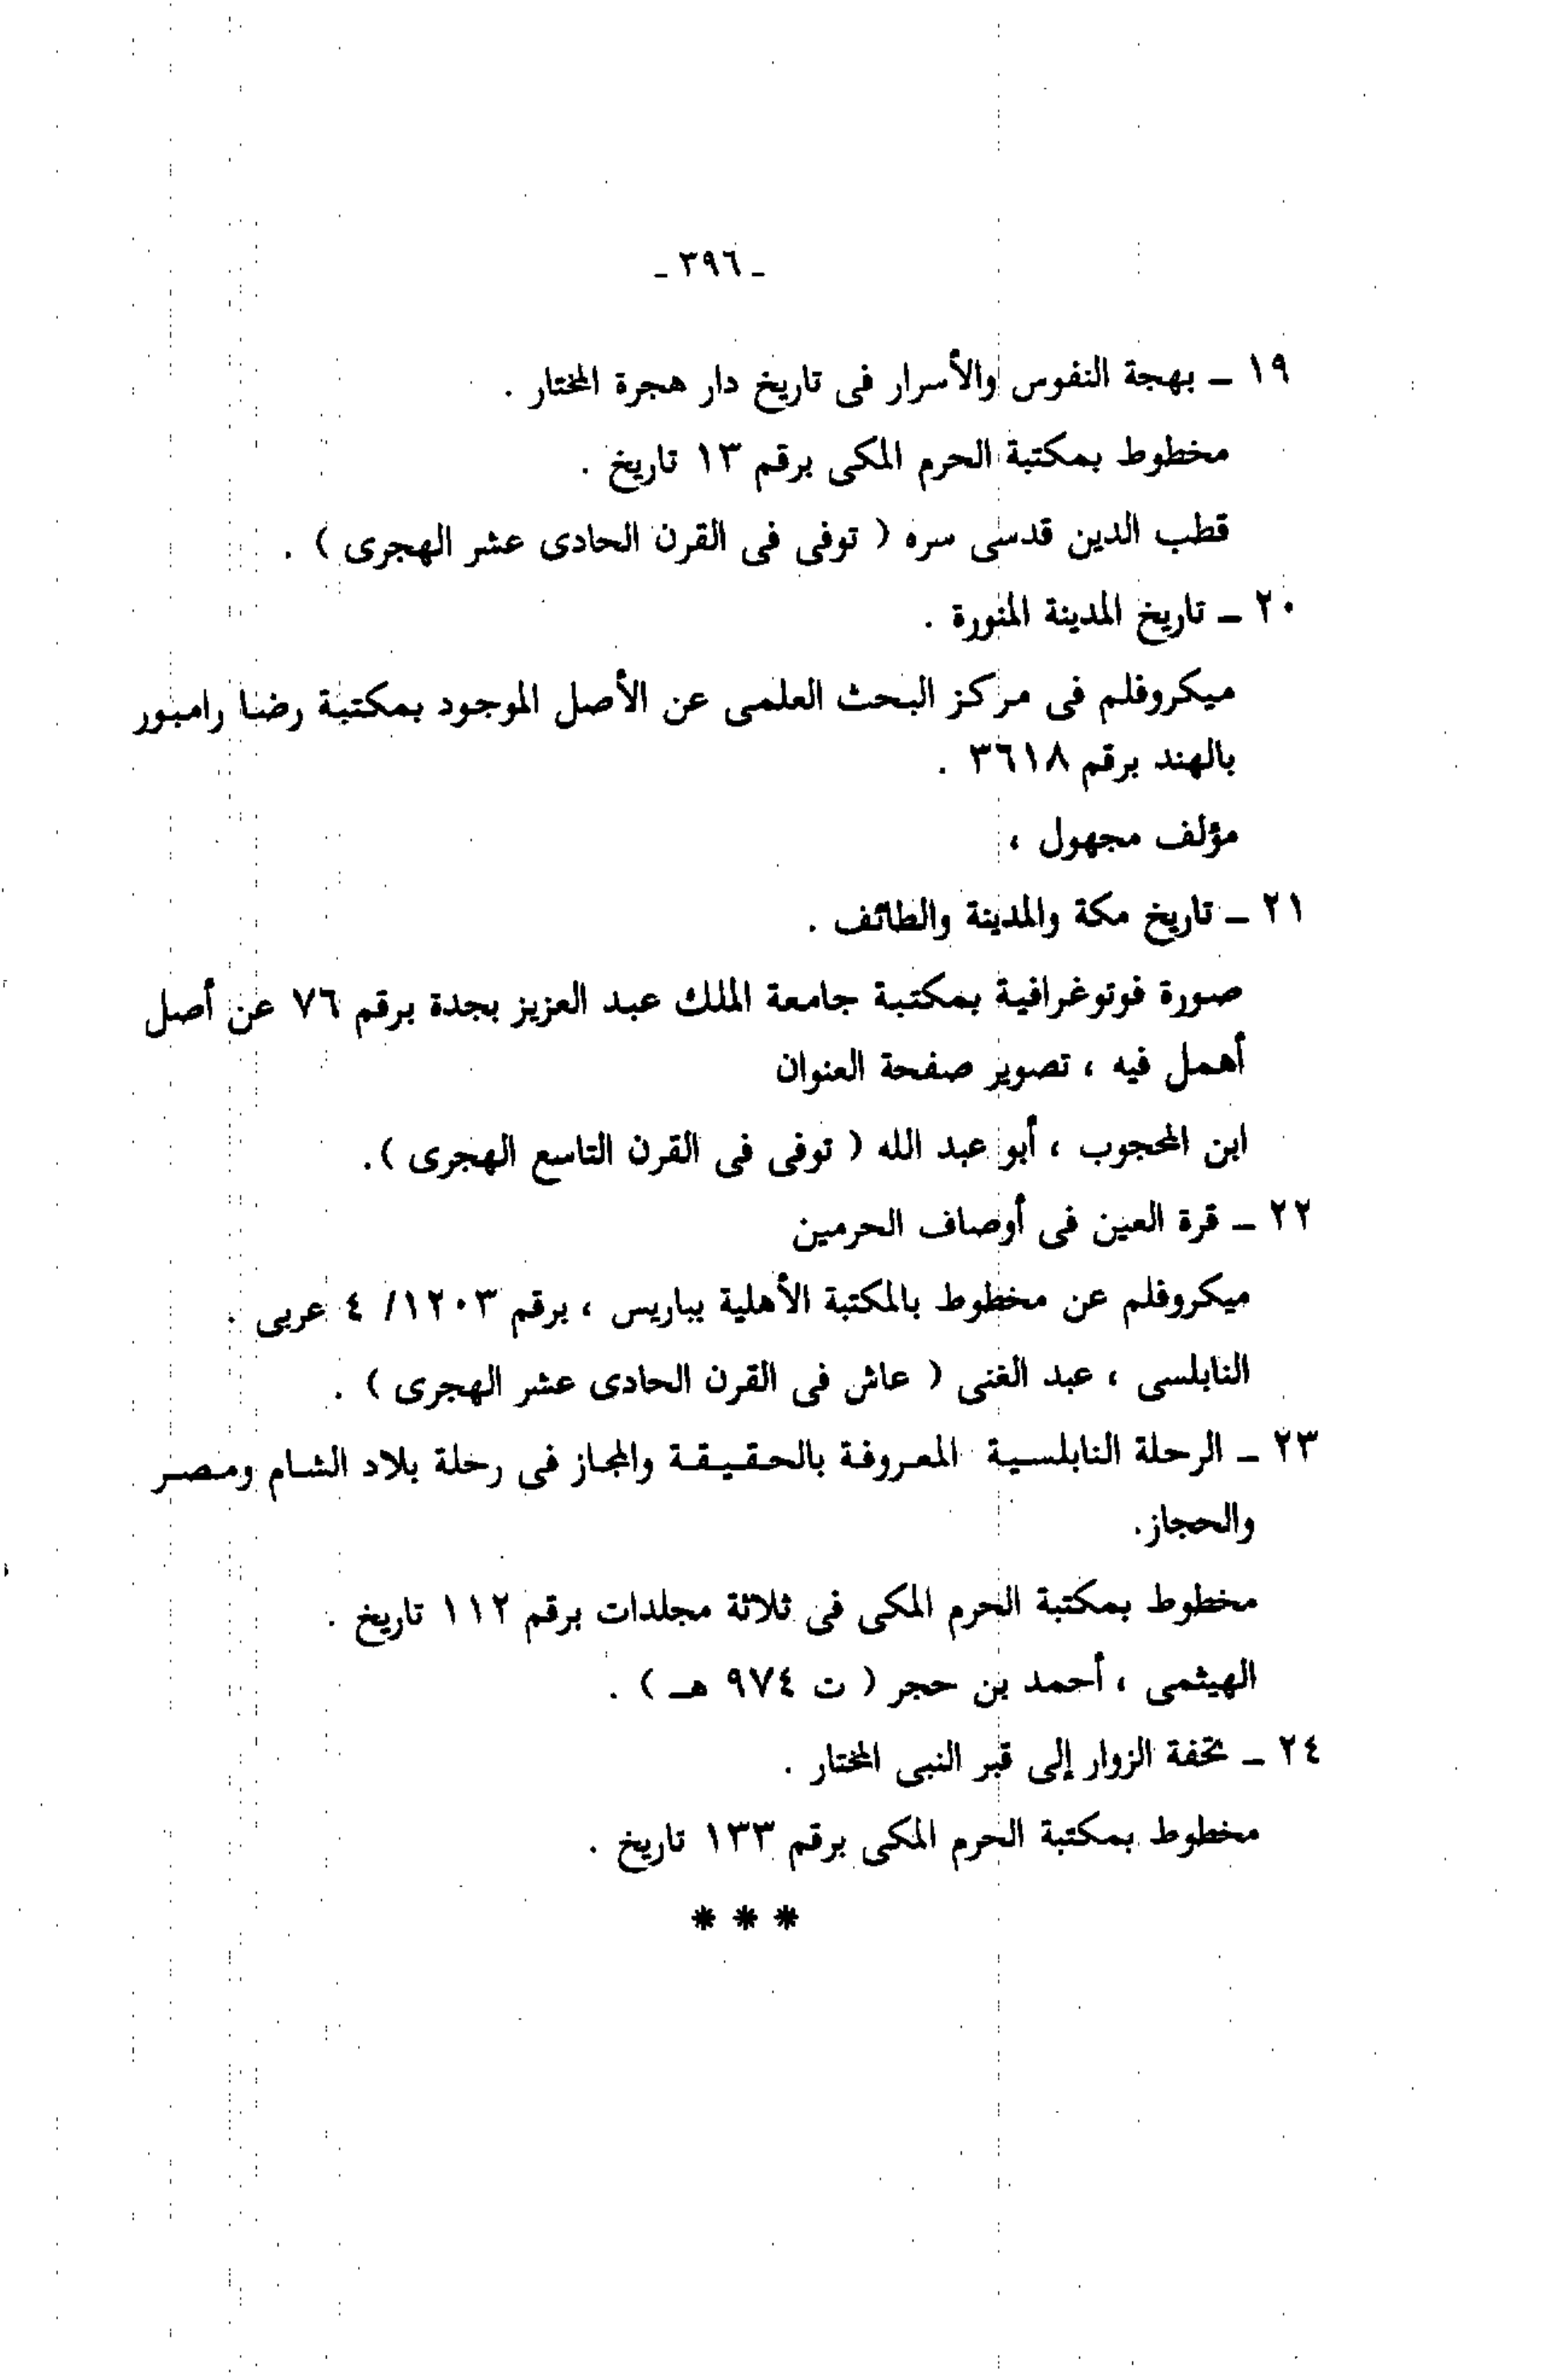 ـ ٣٩٦ ـ
١٩ ـ بهجة النفوس والأسرار فى تاريخ دار هجرة المختار .
مخطوط بمكتبة الحرم المكى برقم ١٣ تاريخ .
قطب الدين قدسى سره ( توفى فى القرن الحادى عشر الهجرى ) .
٢٠ ـ تاريخ المدينة المنورة .
ميكروفلم فى مركز البحث العلمى عن الأصل الموجود بمكتبة رضا رامبور
بالهند برقم ٣٦١٨ .
مؤلف مجهول ،
٢١ ـ تاريخ مكة والمدينة والطائف .
صورة فوتوغرافية بمكتبة جامعة الملك عبد العزيز بجدة برقم ٧٦ عن أصل
أهمل فيه ، تصوير صفحة العنوان
ابن المحجوب ، أبو عبد الله ( توفى فى القرن التاسع الهجرى ).
٢٢ ـ قرة العين فى أوصاف الحرمين
ميكروفلم عن مخطوط بالمكتبة الأهلية بباريس ، برقم ١٢٠٣/ ٤ عربى .
النابلسى ، عبد الغنى ( عاش فى القرن الحادى عشر الهجرى ) .
٢٣ ـ الرحلة النابلسية المعروفة بالحقيقة والمجاز فى رحلة بلاد الشام ومصر
والحجاز.
مخطوط بمكتبة الحرم المكى فى ثلاثة مجلدات برقم ١١٢ تاريخ .
الهيثمى ، أحمد بن حجر ( ت ٩٧٤ هـ ) .
٢٤ ـ تحفة الزوار إلى قبر النبى المختار .
مخطوط بمكتبة الحرم المكى برقم ١٣٣ تاريخ .
* * *